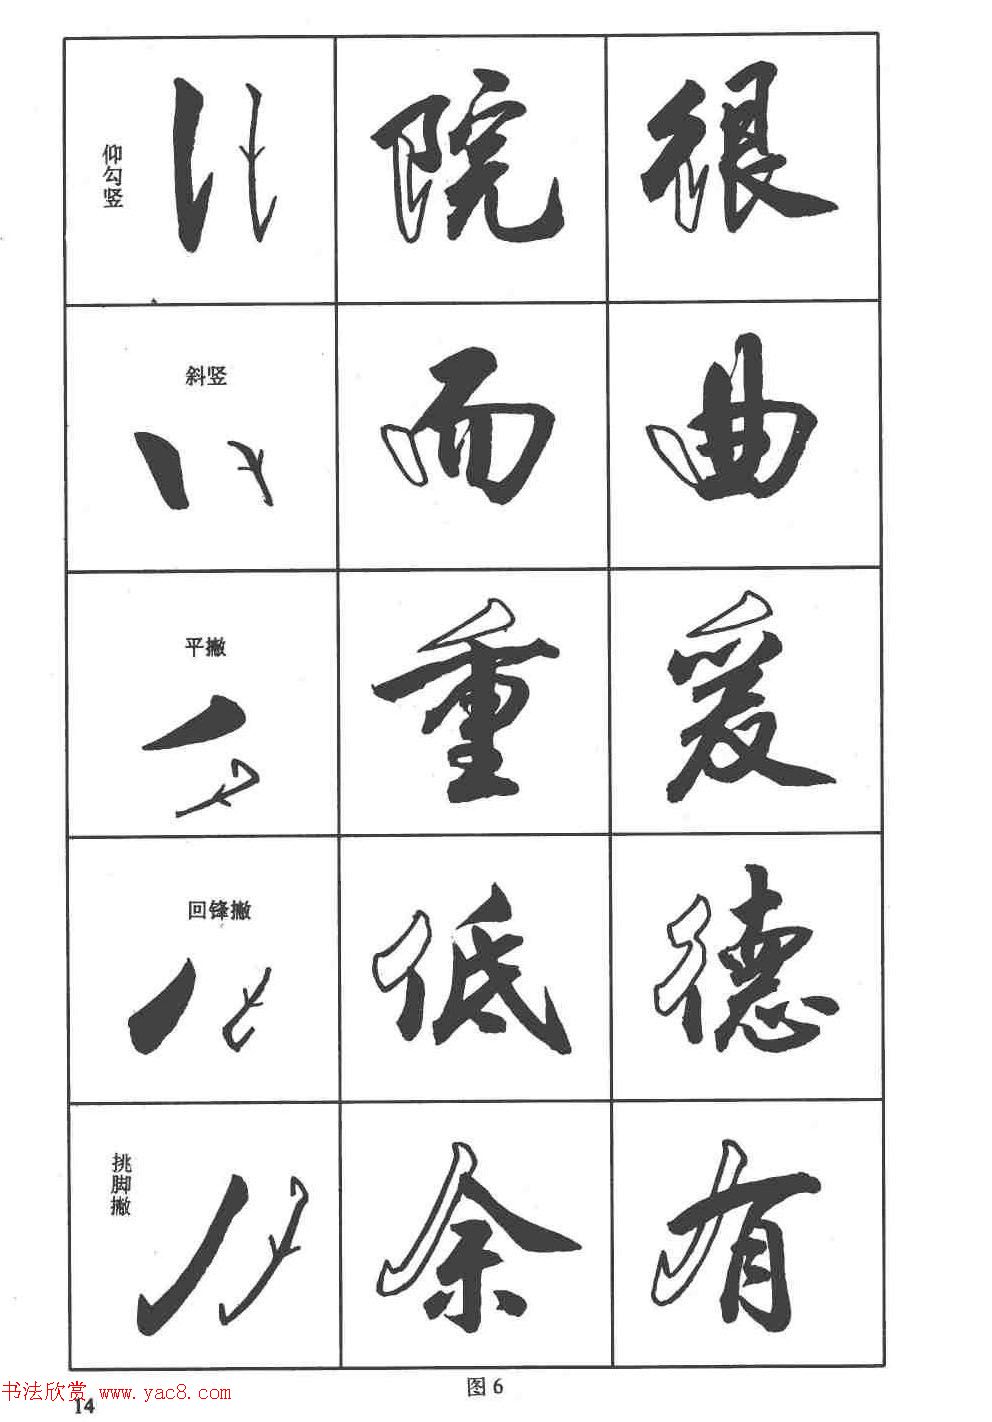 仰勾竖
院
很
斜竖
而
曲
平撇
重
爰
回锋撇
低
德
挑脚撇
余
有
图6
书法欣赏 www.yac8.com
14